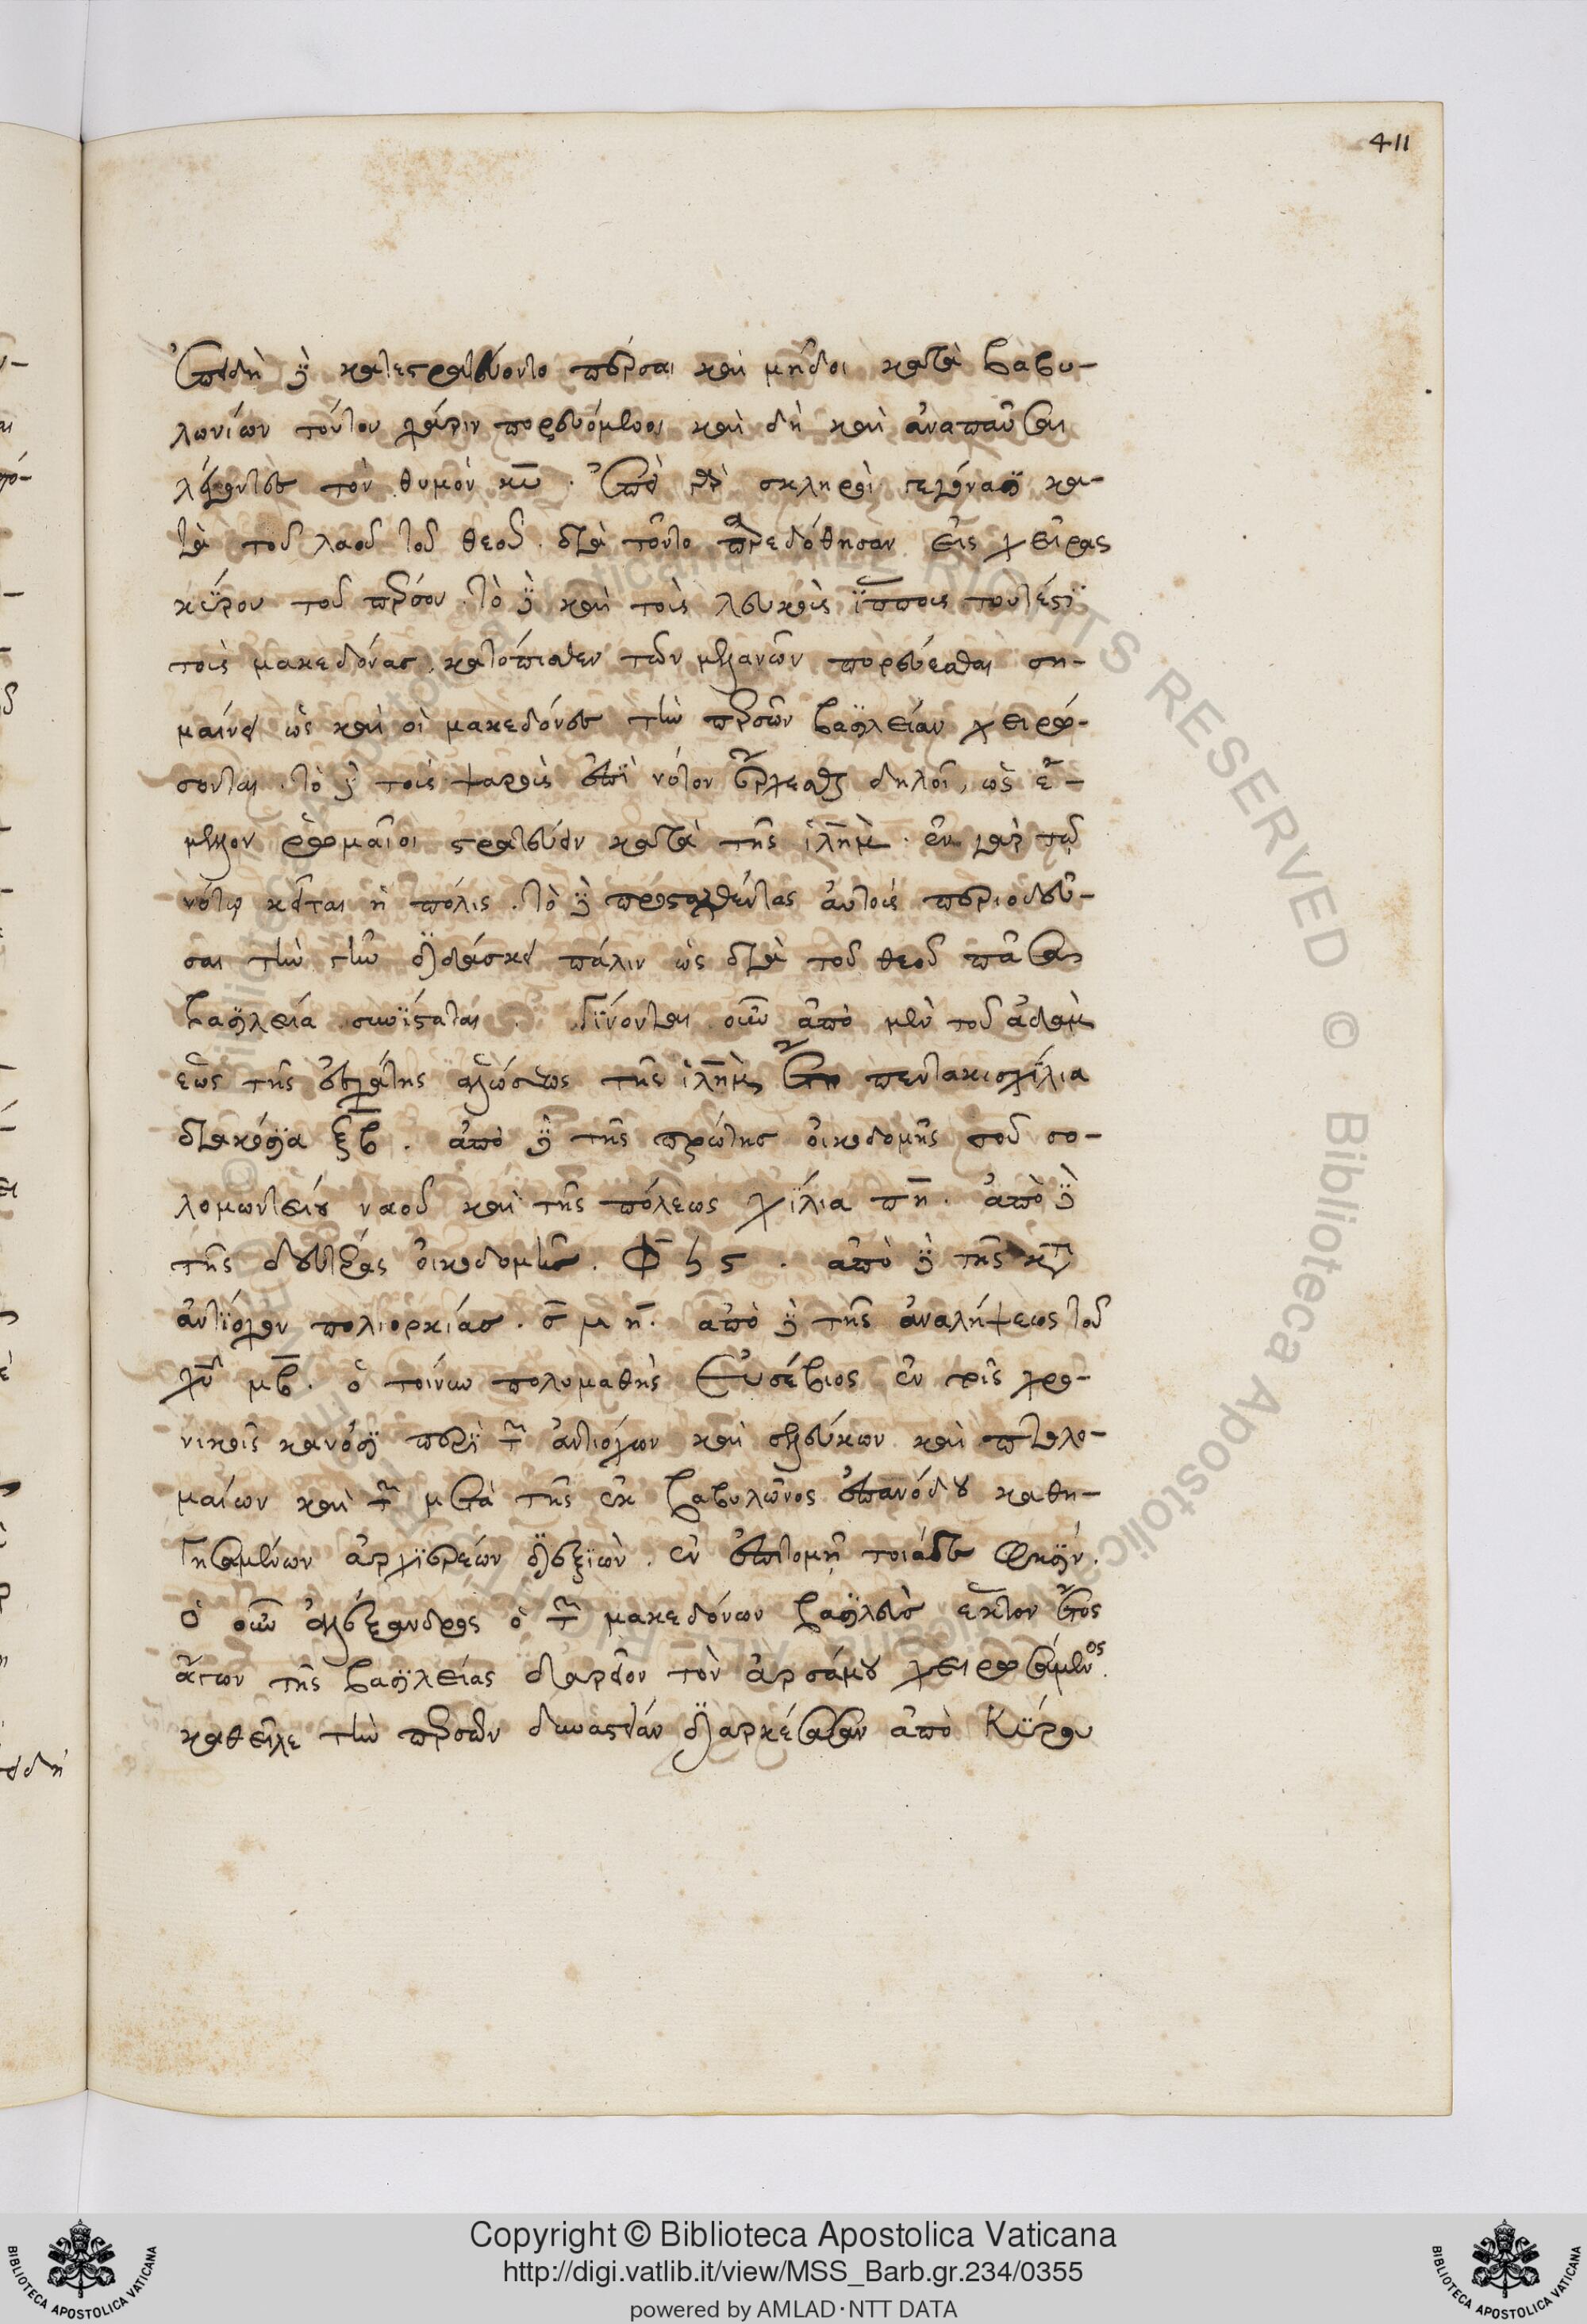 411
Ἐπειδὴ δὲ κατεστρατεύοντο πέρσαι καὶ μῆδοι κατὰ βαβυ-
λωνίων τούτου χάριν πορευόμενοι καὶ δὴ καὶ ἀναπαῦσαι
λέγονται τὸν θυμὸν κυ. Ἐπεὶ δὲ σκληροὶ γεγόνασι κα-
τὰ τοῦ λαοῦ τοῦ θεοῦ. διὰ τοῦτο παρεδόθησαν εἰς χεῖρας
κύρου τοῦ πέρσου. τὸ δὲ καὶ τοὺς λευκοὺς ἵππους τουτέστι
τοὺς μακεδόνας. κατόπισθεν τῶν μελανῶν πορεύεσθαι ση-
μαίνει ὡς καὶ οἱ μακεδόνες τὴν περσῶν βασιλείαν χειρώ-
σονται. τὸ δὲ τοὺς ψαροὺς ἐπὶ νότον ἔρχεσθαι δηλοῖ, ὡς ἔ-
μελλον ῥωμαῖοι στρατεύειν κατὰ τῆς ἰλημ. ἐν γὰρ τῷ
νότῳ κεῖται ἡ πόλις. τὸ δὲ προσταχθέντας αὐτοὺς περιοδεῦ-
σαι τὴν γῆν διδάσκει πάλιν ὡς διὰ τοῦ θεοῦ πᾶσα
βασιλεία συνίσταται. Γίνονται οὖν ἀπὸ μὲν τοῦ ἀδὰμ
ἕως τῆς ἐσχάτης ἁλώσεως τῆς ἰλημ ἔτη πεντακισχίλια
διακόσια ξβ. ἀπὸ δὲ τῆς πρώτης οἰκοδομῆς τοῦ σο-
λομωντείου ναοῦ καὶ τῆς πόλεως χίλια πη. ἀπὸ δὲ
τῆς δευτέρας οἰκοδομῆς. φϟς. ἀπὸ δὲ τῆς κατ
ἀντιόχου πολιορκίας. σμη. ἀπὸ δὲ τῆς ἀναλήψεως τοῦ
χυ μβ. ὁ τοίνυν πολυμαθὴς Εὐσέβιος ἐν τοῖς χρο-
νικοῖς κανόσι περὶ τῶν ἀντιόχων καὶ σελεύκων καὶ πτολο-
μαίων καὶ τῶν μετὰ τῆς ἐκ βαβυλῶνος ἐπανόδου καθη-
γησαμένων ἀρχιερέων διεξιὼν. ἐν ἐπιτομῇ τοιάδε φησίν.
Ὁ οὖν ἀλέξανδρος ὁ τῶν μακεδόνων βασιλεὺς ἕκτον ἔτος
ἄγων τῆς βασιλείας δαρεῖον τὸν ἀρσάμου χειρωσάμενος.
καθεῖλε τὴν περσῶν δυναστείαν διαρκέσασαν ἀπὸ Κύρου
Copyright © Biblioteca Apostolica Vaticana
http://digi.vatlib.it/view/MSS_Barb.gr.234/0355
powered by AMLAD·NTT DATA